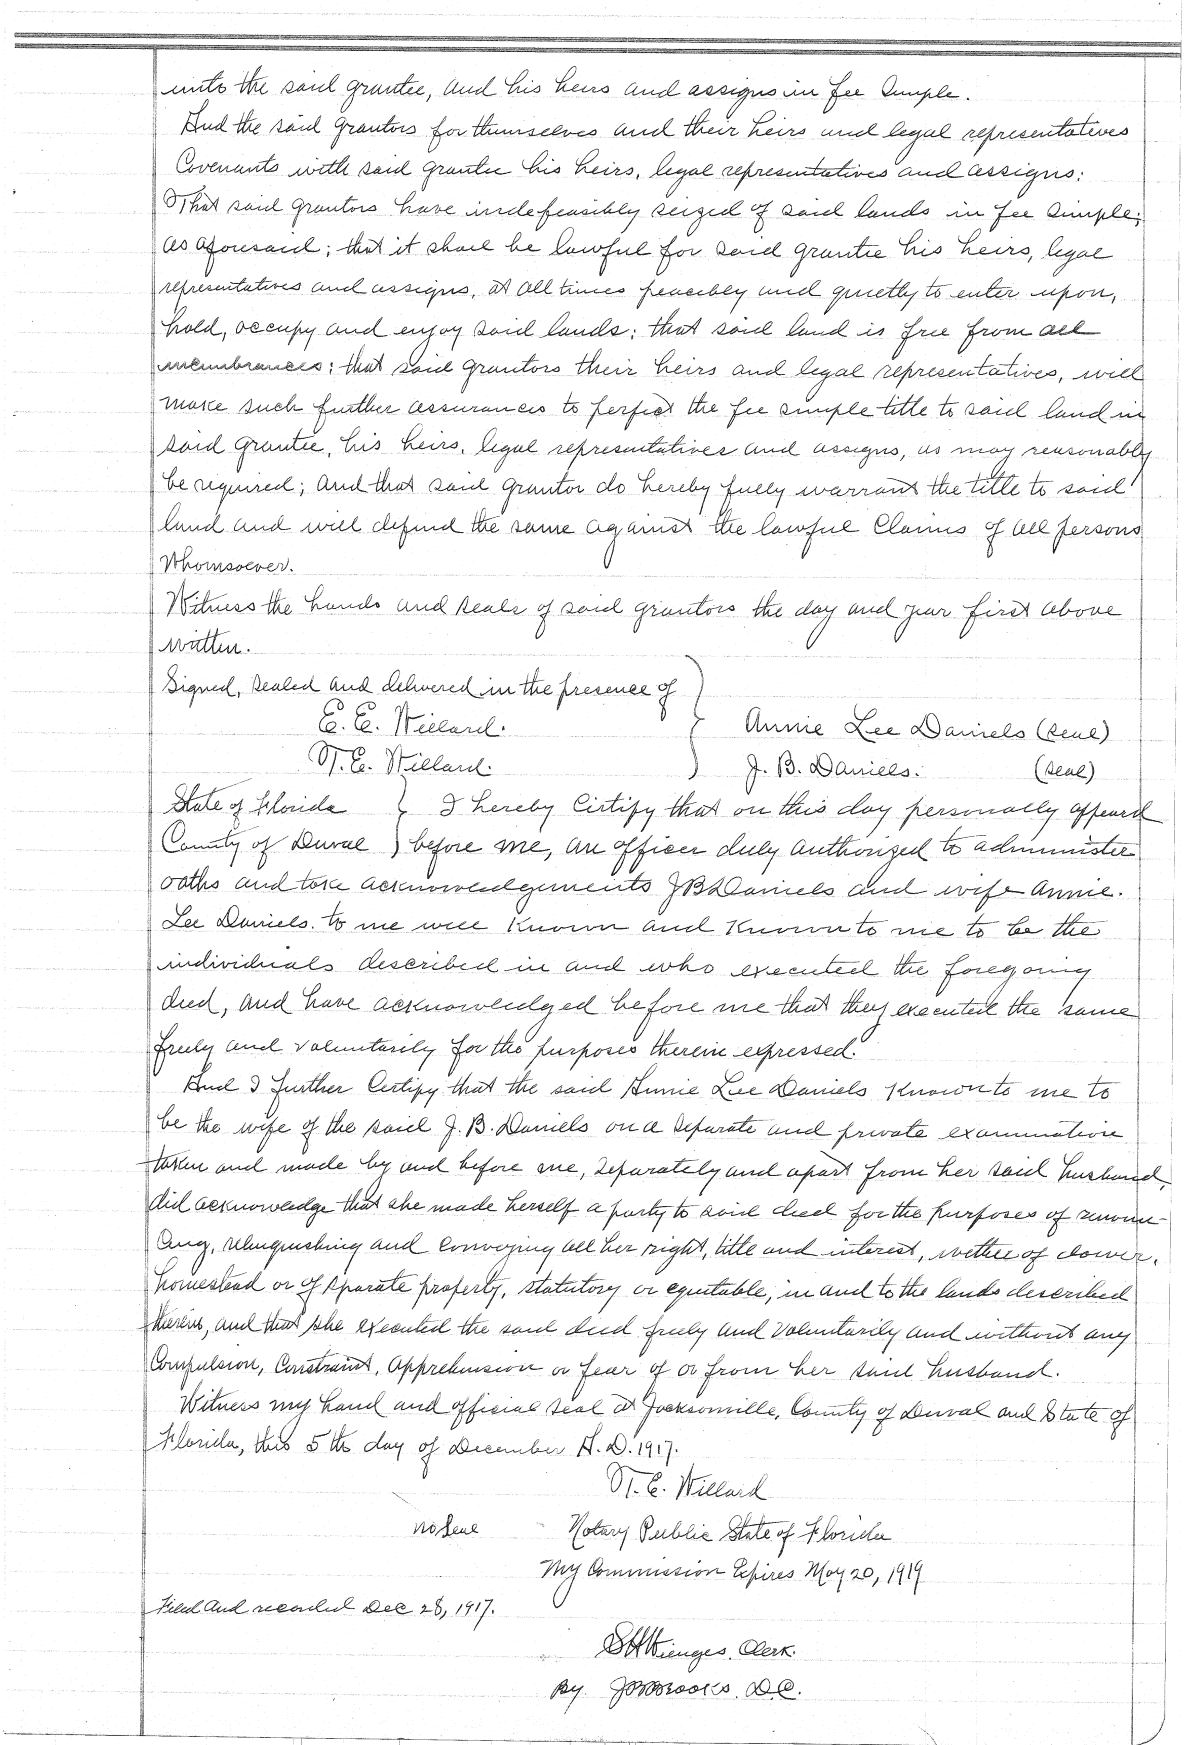 unto the said grantee, and his heirs and assigns in fee simple.
And the said grantors for themselves and their heirs and legal representatives
Covenants with said grantee his heirs, legal representatives and assigns:
That said grantors have indefeasibly seized of said lands in fee simple;
as aforesaid; that it shall be lawful for said grantee his heirs, legal
representatives and assigns, at all times peacibly and quietly to enter upon,
hold, occupy and enjoy said lands; that said land is free from all
incumbrances; that said grantors their heirs and legal representatives, will
make such further assurances to perfect the fee simple title to said land in
said grantee, his heirs, legal representatives and assigns, as may reasonably
be required; and that said grantor do hereby fully warrant the title to said
land and will defend the same against the lawful Claims of all persons
Whomsoever.
Witness the hands and seals of said grantors the day and year first above
written.
Signed, sealed and delivered in the presence of
E. E. Willard. Annie Lee Daniels (seal)
T. E. Willard. J. B. Daniels. (seal)
State of Florida } I hereby Certify that on this day personally appeard
County of Duval ) before me, an officer duly authorized to administer
oaths and take acknowledgements J B Daniels and wife Annie.
Lee Daniels. to me well known and known to me to be the
individuals described in and who executed the foregoing
deed, and have acknowledged before me that they executed the same
freely and voluntarily for the purposes therein expressed.
And I further Certify that the said Annie Lee Daniels known to me to
be the wife of the said J. B. Daniels on a separate and private examination
taken and made by and before me, separately and apart from her said husband,
did acknowledge that she made herself a party to said deed for the purposes of renoun-
cing, relinquishing and conveying all her right, title and interest, wether of dower,
homestead or of separate property, statutory or equitable, in and to the lands described
therein, and that she executed the said deed freely and voluntarily and without any
Compulsion, Constraint, apprehension or fear of or from her said husband.
Witness my hand and official seal at Jacksonville, County of Duval and State of
Florida, this 5th day of December A. D. 1917.
T. E. Willard
no seal Notary Public State of Florida
My Commission Expires May 20, 1919
Filed and recorded Dec 28, 1917.
Wienges, Clerk.
By Brooks, D.C.